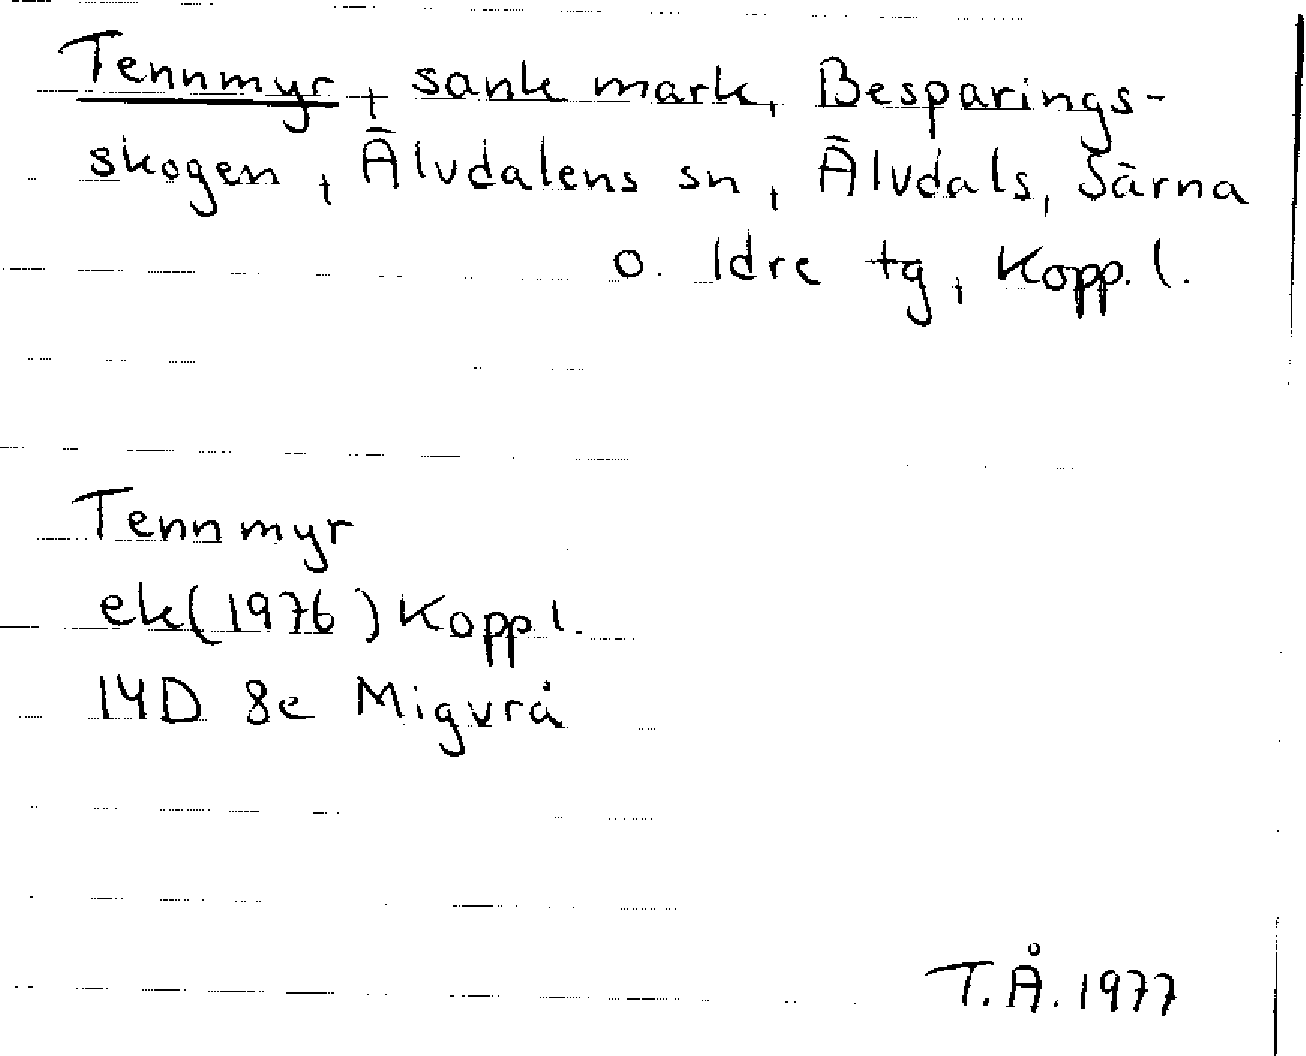 Tennmyr, sank mark, Besparings-
skogen, Älvdalens sn, Älvdals, Särna
o. Idre tg, Kopp. l.
Tennmyr
ek(1976) Kopp l.
14D 8e Migvrå
T.Å. 1977